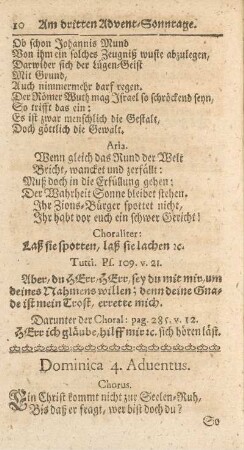 10 Am dritten Advent-Sonntage.
Ob schon Johannis Mund
Von ihm ein solches Zeugniß wuste abzulegen,
Darwider sich der Lügen-Geist
Mit Grund,
Auch nimmermehr darf regen.
Der Römer Wuth mag Israel so schröckend seyn,
So trifft das ein:
Es ist zwar menschlich die Gestalt,
Doch göttlich die Gewalt,
Aria.
Wenn gleich das Rund der Welt
Bricht, wancket und zerfällt:
Muß doch in die Erfüllung gehen:
Der Wahrheit Sonne bleibet stehen.
Ihr Zions-Bürger spottet nicht,
Ihr habt vor euch ein schwer Gericht!
Choraliter:
Laß sie spotten, laß sie lachen ꝛc.
Tutti. Pf. 109. v. 21.
Aber, du HErr HErr, sey du mit mir, um
deines Nahmens willen; denn deine Gna-
de ist mein Trost, errette mich.
Darunter der Choral: pag. 285. v. 12.
HErr ich gläube, hilff mir ꝛc. sich hören läst.
Dominica 4. Adventus.
Chorus.
Ein Christ kommt nicht zur Seelen-Ruh,
Bis daß er fragt, wer bist doch du?
So